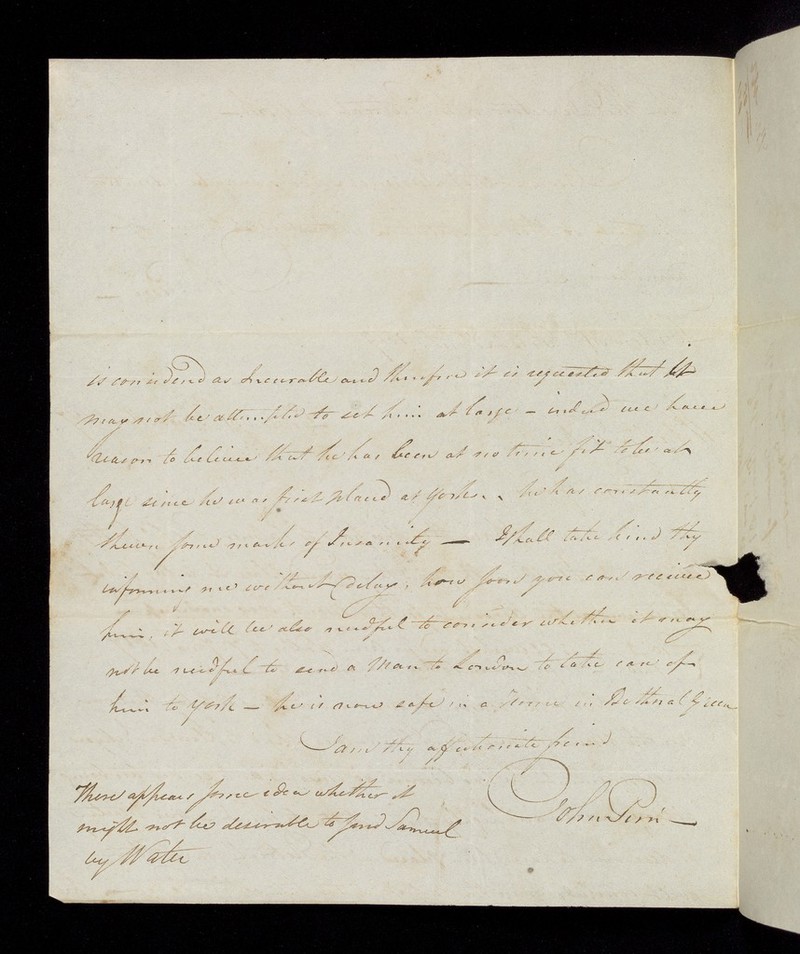 is considerd as Incurable and therefore it is requested that it
may not be attempted to set him at large – indeed we have
reason to believe that he has been at no time fit to be at
large since he was first placed at York – he has constantly
shewn some marks of Insanity — I shall take kind thy
informing me without delay, how soon you can receive
him, it will be also needful to consider whether it may
not be needful to send a Man to London to take care of
him to York – he is now safe in a House in Bethnal Green
I am thy affectionate friend
John Pim –
There appears some idea whether it
might not be desirable to send Samuel
by Water